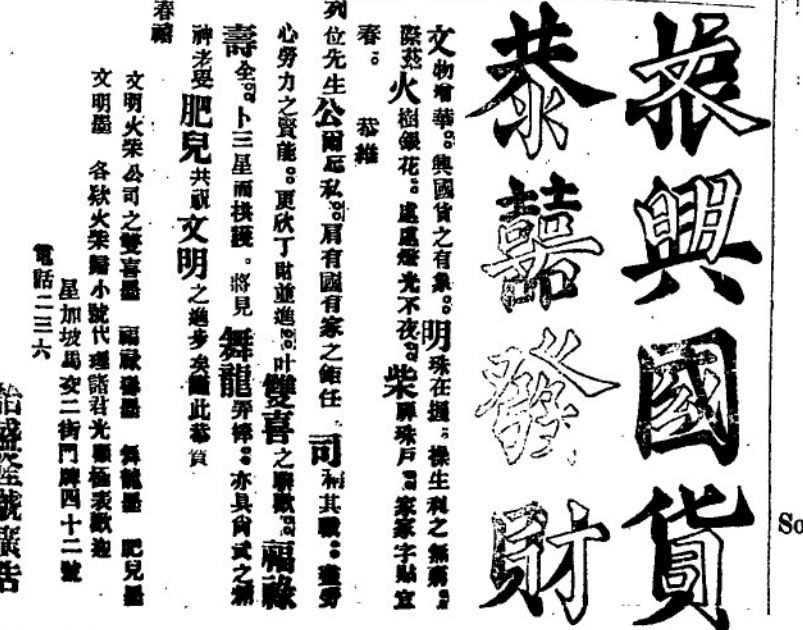 振興國貨
恭囍發財
文物增華。興國貨之有象。明珠在握。操生利之無窮。
際茲火樹銀花。處處燈光不夜。柴扉珠戶。家家字貼宜
春。 恭維
列位先生公爾忘私。肩有國有家之鉅任。司其職。
心勞力之賢能。更欣丁財並進。叶雙喜之聯歡。福祿
壽全。卜三星而拱護。將見舞龍弄棒。亦具尚武之精
神老嬰肥兒共祝文明之進步矣謹此恭賀
春禧
文明火柴公司之雙喜墨 福祿壽墨 舞龍墨 肥兒墨
文明墨 各欵火柴歸小號代理諸君光顧極表歡迎
星加坡馬交二街門牌四十二號
電話二三六
號廣告
So